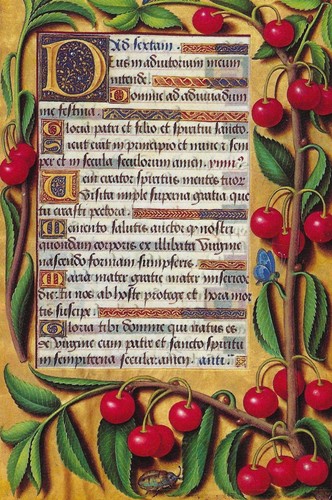 Ad sextam.
Deus in adiutorium meum
intende. Domine ad adiuvandum
me festina.
Gloria patri et filio et spiritui sancto.
Sicut erat in principio et nunc et sem
per et in secula seculorum amen.
Veni creator spiritus mentes tuor
Visita imple superna gratia que
tu creasti pectora.
Memento salutis auctor q nostri
quondam corporis ex illibata virgine
nascendo formam sumpseris.
Maria mater gratie mater misericor
die: tu nos ab hoste protege et hora mor
tis suscipe.
Gloria tibi domine qui natus es
de virgine cum patre et sancto spiritu
in sempiterna secula. amen. anti